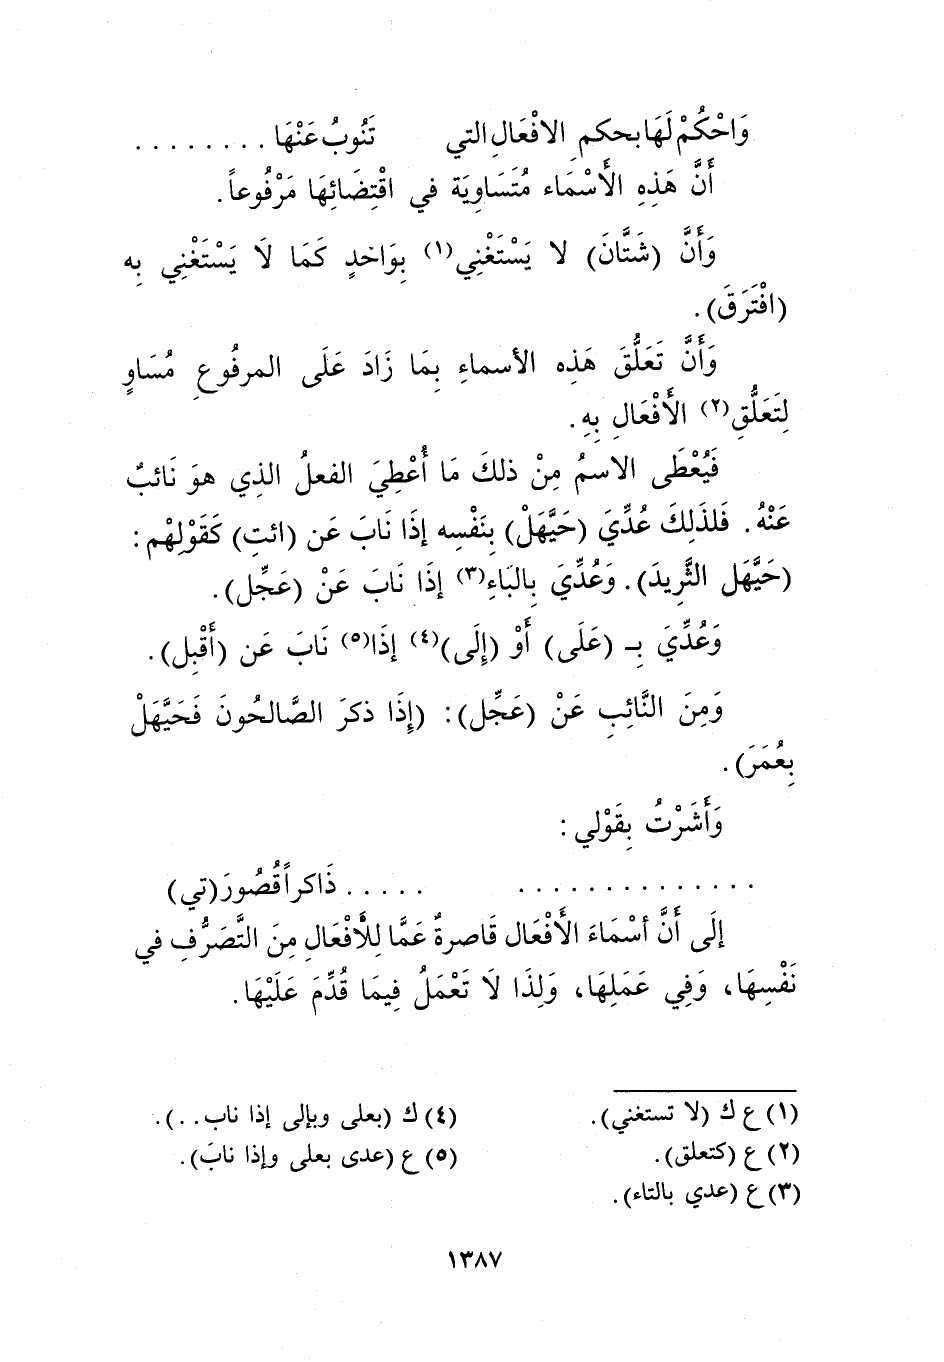 وَاحْكُمْ لَهَا بحكمِ الافْعَالِ التي تَنُوبُ عَنْهَا . . . . . . . .
أَنَّ هَذِهِ الأَسْمَاء مُتَسَاوِيَة في اقْتِضَائِهَا مَرْفُوعاً.
وَأَنَّ (شَتَّانَ) لا يَسْتَغْنِي(١) بِوَاحدٍ كَمَا لَا يَسْتَغْنِي بِه
(افْتَرَقَ).
وَأَنَّ تَعَلُّقَ هَذِه الأسماءِ بِمَا زَادَ عَلَى المرفُوعِ مُسَاوٍ
لِتَعَلُّقِ(٢) الأَفْعَالِ بِهِ.
فَيُعْطَى الاسمُ مِنْ ذلكَ مَا أُعْطِيَ الفعلُ الذِي هوَ نَائبٌ
عَنْهُ. فَلذَلِكَ عُدِّيَ (حَيَّهَلْ) بِنَفْسِه إذَا نَابَ عَن (ائتِ) كَقَوْلِهْم:
(حَيَّهَل الثَّرِيدَ). وَعُدِّيَ بِالبَاءِ(٣) إذَا نَابَ عَنْ (عَجِّل).
وَعُدِّيَ بـ (عَلَى) أَوْ (إِلَى)(٤) إذَا(٥) نَابَ عَن (أَقْبِل).
وَمِنَ النَّائِبِ عَنْ (عَجِّل): (إِذَا ذكرَ الصَّالحُونَ فَحَيَّهَلْ
بِعُمَرَ).
وَأَشَرْتُ بِقَوْلي:
. . . . . . . . . . . . . . . . . . . ذَاكراً قُصُورَ (تي)
إلَى أَنَّ أسْمَاءَ الأَفْعَال قَاصرةٌ عَمَّا لِلأَفْعَالِ مِنَ التَّصَرُّفِ في
نَفْسِهَا، وَفِي عَمَلِهَا، وَلِذَا لَا تَعْمَلُ فِيمَا قُدِّمَ عَلَيْهَا.
(١) ع ك (لا تستغني).
(٢) ع (كتعلق).
(٣) ع (عدي بالتاء).
(٤) ك (بعلى وبإلى إذا ناب. . ).
(٥) ع (عدى بعلى وإذا نابَ).
١٣٨٧